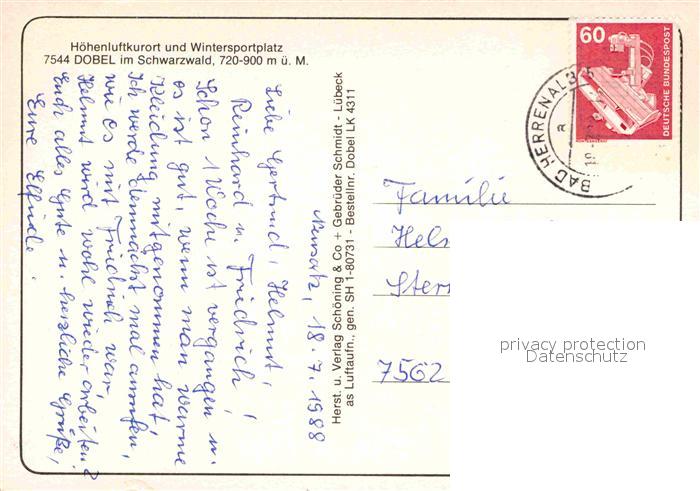 Höhenluftkurort und Wintersportplatz
7544 DOBEL im Schwarzwald, 720-900 m ü. M.
Neusatz, 18.7.1988
Liebe Gertrud, Helmut,
Reinhard u. Friedrich!
Schon 1 Woche ist vergangen u.
es ist gut, wenn man warme
Kleidung mitgenommen hat,
Ich werde demnächst mal anrufen,
wie es mit Friedrich war,
Helmut wird wohl wieder arbeiten?
Euch alles Gute u. herzliche Grüße,
Eure Elfriede.
Herst. u. Verlag Schöning & Co + Gebrüder Schmidt - Lübeck
as Luftaufn., gen. SH 1-80731 - Bestellnr. Dobel LK 4311
60
DEUTSCHE BUNDESPOST
BAD HERRENALB
a
Familie
Hel
Ster
7562
privacy protection
Datenschutz